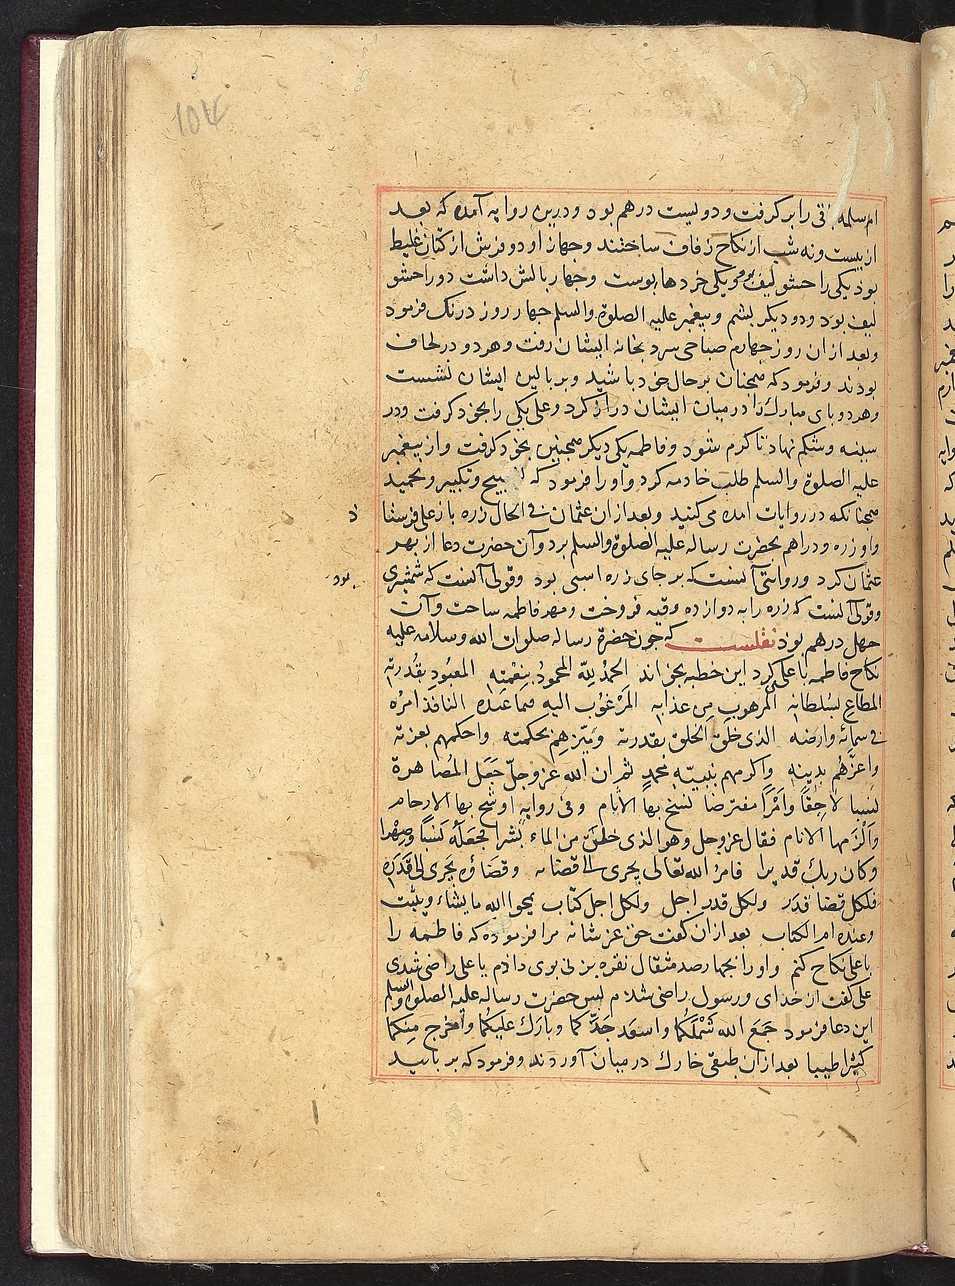 ام سلمه باقی را بر گرفت و دویست درهم بود و درین روایه آمده که بعد
از بیست و نه شب از نکاح زفاف ساختند و جهاز او دو فرش از کتان غلیظ
بود یکی را حشو لیف بود و یکی خردهای پوست و چهار بالش داشت دو را حشو
لیف بود و دو دیگر پشم و پیغمبر علیه الصلوة والسلم چهار روز درنگ فرمود
و بعد از ان روز چهارم صباحی سرد بخانه ایشان رفت و هر دو در لحاف
بودند و فرمود که همچنان بر حال خود باشید و بر بالین ایشان نشست
و هر دو پای مبارک را در میان ایشان دراز کرد و علی یکی را بخود گرفت و در
سینه و شکم نهاد تا گرم شود و فاطمه یکی دیگر همچنین بخود گرفت و از پیغمبر
علیه الصلوة والسلم طلب خادمه کرد و او را فرمود که تسبیح و تکبیر و تحمید
همچنانکه در روایات امده می کنید و بعد از ان عثمان فی الحال زره باز علی فرستا
د
و او زره و دراهم بحضرت رساله علیه الصلوة والسلم برد و آن حضرت دعا از بهر
عثمان کرد و روایتی آنست که بر جای زره اسبی بود و قولی آنست که شمشیری
بود
و قولی آنست که زره را به دوازده وقیه فروخت و مهر فاطمه ساخت و آن
چهل درهم بود نقلست که چون حضرة رساله صلوات الله وسلامه علیه
نکاح فاطمه با علی کرد این خطبه بخواند الحمدُ للّه المحمودُ بنِعْمَتِه المعبودِ بقُدرتِه
المطاعِ بسُلطانِه المرهوبِ مِن عذابِه المَرْغوُب الیه فیما عنده النافذ امرُه
فی سمائه وارضه الذی خلَقَ الخلق بقدرته ومَیّزهم بحکمته واحکمهم بعزته
واعزّهم بدینه واکرمهم بنبیّه محمدٍ ثم ان الله عز وجلّ جَعَل المُصاهرة
نسبا لاحِقاً وامْراً مفترضا نسخ بها الآثام وفی روایه اوشج بها الارحام
واَلْزمها الانام فقال عز وجل وهو الذی خلقَ من الماء بَشرا فجعلَهُ نَسَباً وصِهْرا
وکان ربک قدیرا فامرُ الله تعالی یجری الی قضائه وقضاؤه یَجری الی قَدَرِه
فلکل قضاء قدَر ولکل قدر اجل ولکل اجل کتاب یمحوا الله ما یشاء ویثبت
وعنده ام الکتاب بعد از ان گفت حق عز شانه مرا فرموده که فاطمه را
با علی نکاح کنم و او را بچهارصد مثقال نقره بزنی بوی دادم یا علی راضی شدی
علی گفت از خدای و رسول راضی شدم پس حضرت رساله علیه الصلوة والسلم
این دعا فرمود جَمَعَ الله شَمْلَکُما واسعَد جَدّکما وبارَک علیکُما واَخْرج مِنکما
کثیرا طیبا بعد از ان طبقی خارک در میان آوردند و فرمود که بربایید